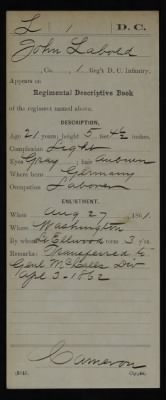 L | 1 | D. C.
John Labold
, Co. , 1 Reg't D. C. Infantry.
Appears on
Regimental Descriptive Book
of the regiment named above.
DESCRIPTION.
Age 21 years; height 5 feet 4½ inches.
Complexion Light
Eyes Gray ; hair Auburn
Where born Germany
Occupation Laborer
ENLISTMENT.
When Aug 27 , 1861.
Where Washington
By whom Ellwood term 3 y'rs.
Remarks: Transferred to
Genl McCalls Div
Apl 3 - 1862
Cameron
Copyist.